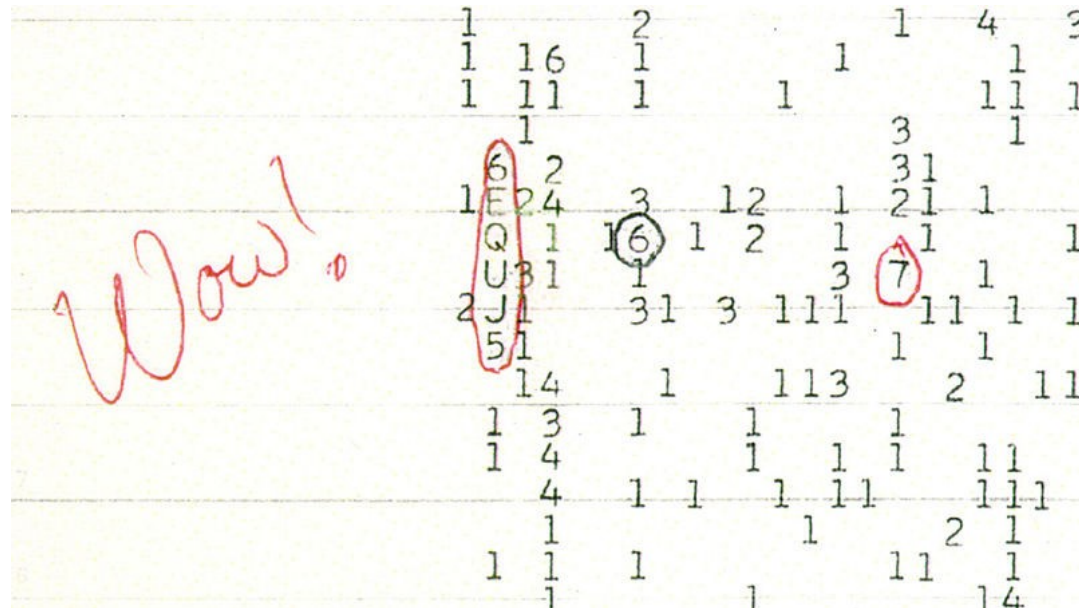 1 2 1 4
1 16 1 1 1
1 11 1 1 11 1
1 3 1
6 2 31
1 E24 3 12 1 21 1
Q 1 16 1 2 1 1 1
U31 1 3 7 1
2J1 31 3 111 11 1 1
51 1 1
14 1 113 2 11
1 3 1 1 1
1 4 1 1 1 11
4 1 1 1 11 111
1 1 2 1
1 1 1 11 1
1 1 14
Wow!